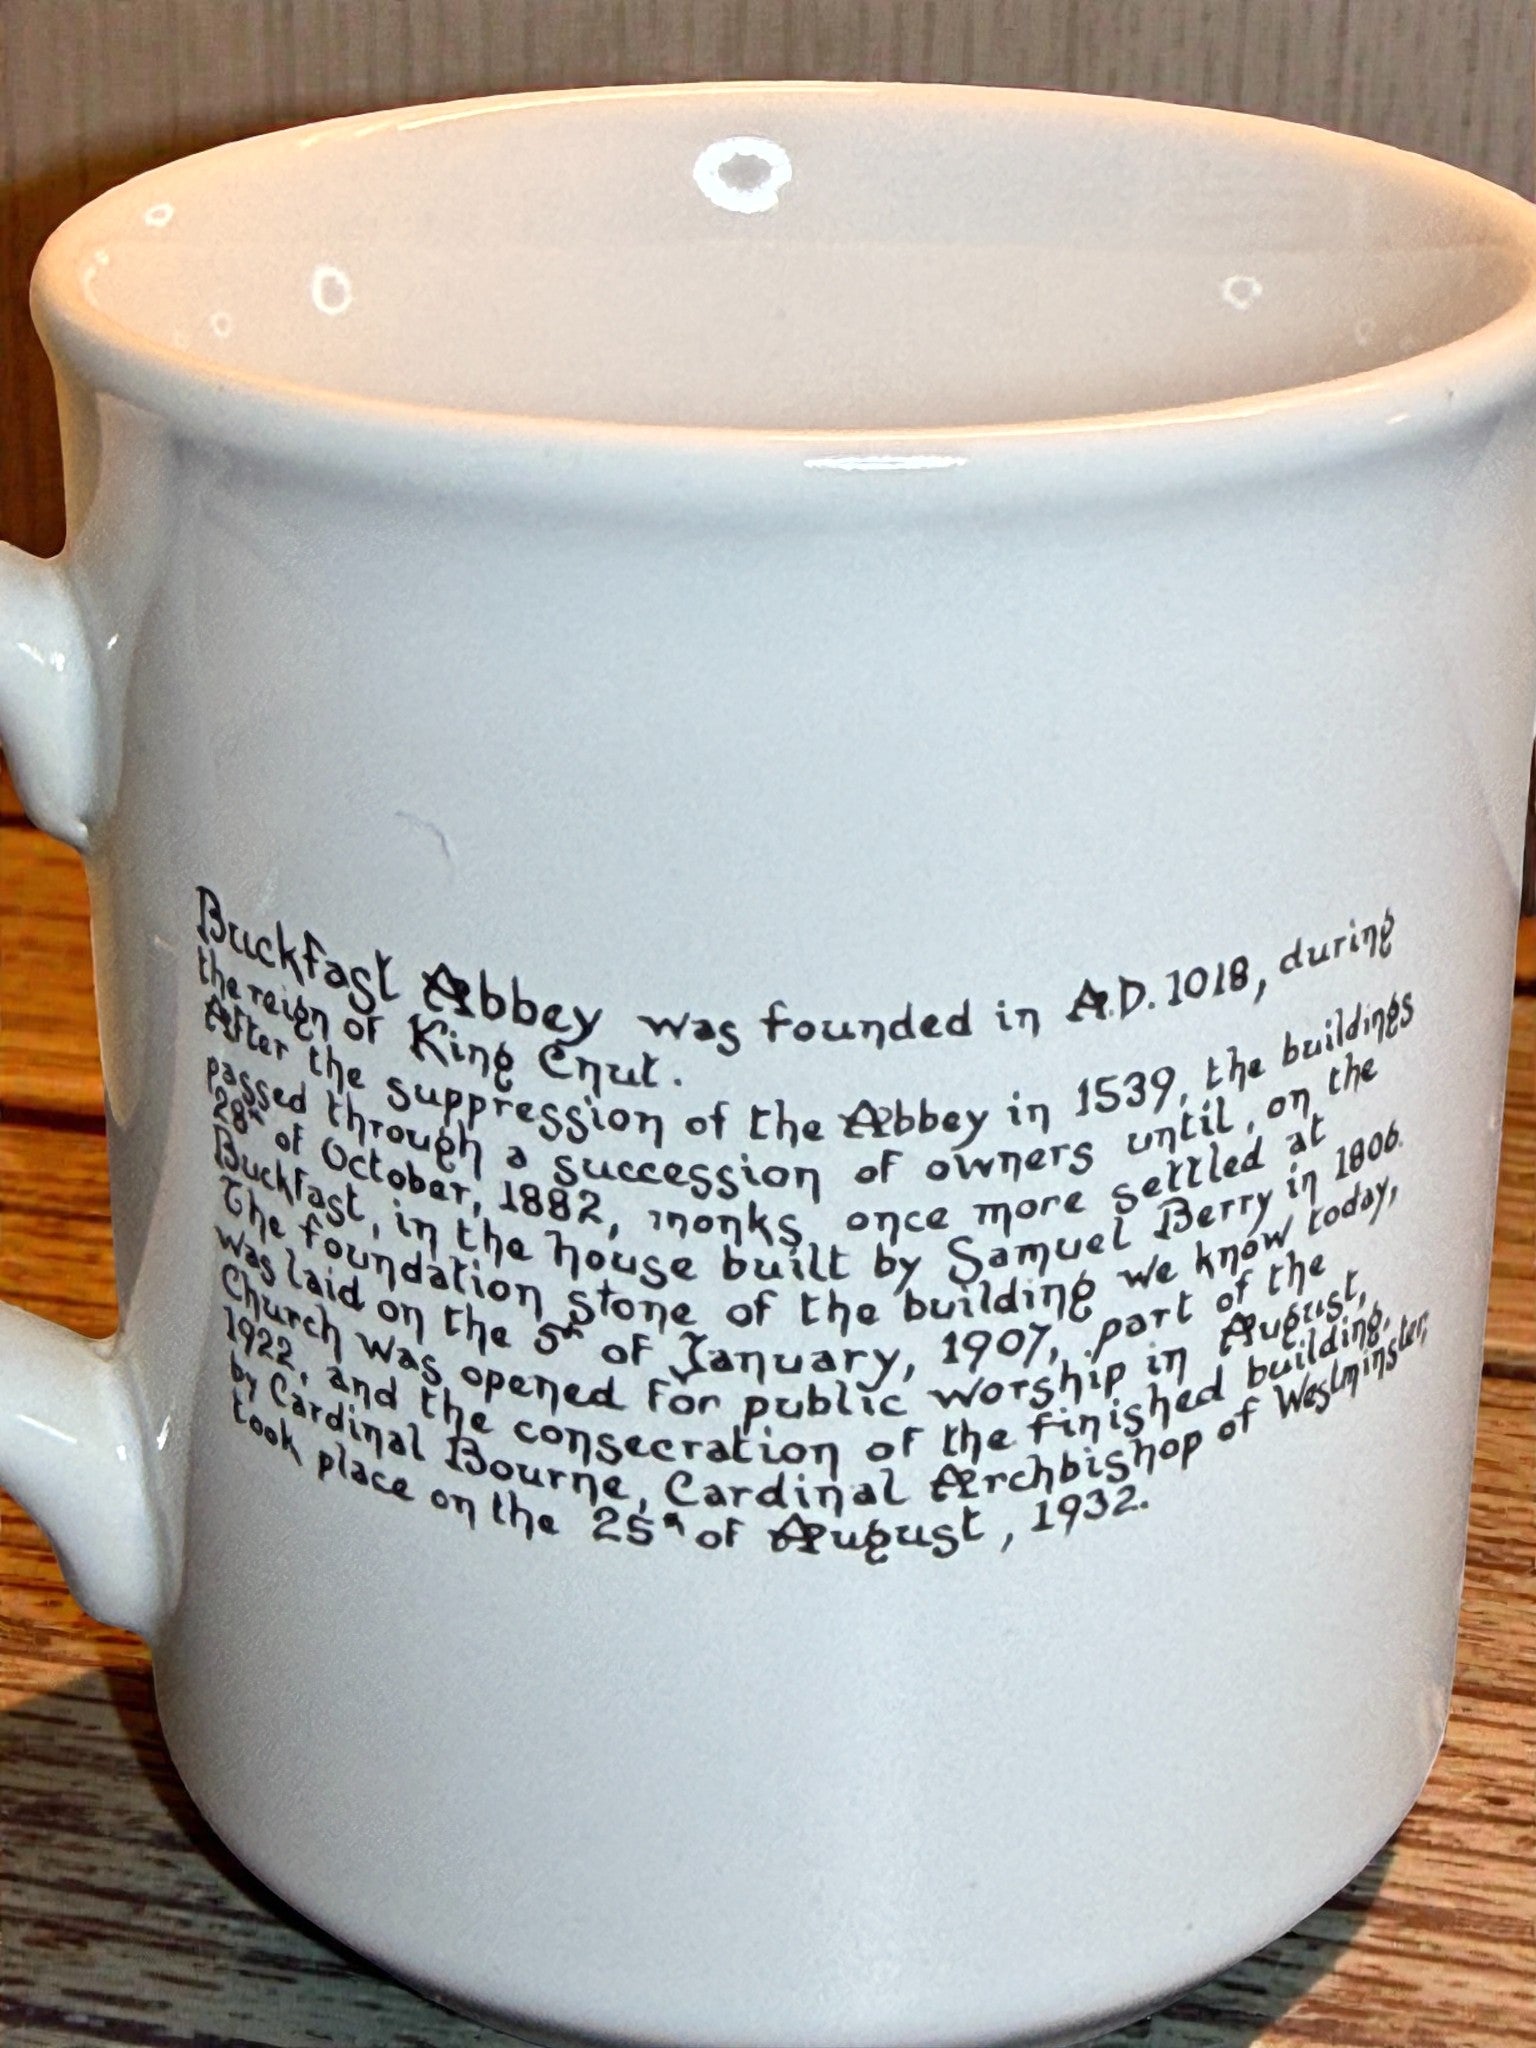 Buckfast Abbey was founded in A.D. 1018, during
the reign of King Cnut.
After the suppression of the Abbey in 1539, the buildings
passed through a succession of owners until, on the
28th of October, 1882, monks once more settled at
Buckfast, in the house built by Samuel Berry in 1806.
The foundation stone of the building we know today,
was laid on the 5th of January, 1907, part of the
Church was opened for public worship in August,
1922, and the consecration of the finished building,
by Cardinal Bourne, Cardinal Archbishop of Westminster,
took place on the 25th of August, 1932.